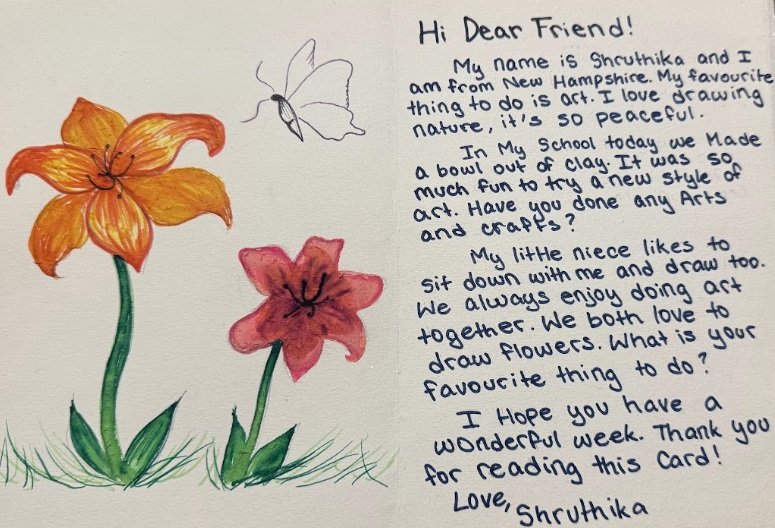 Hi Dear Friend!
My name is Shruthika and I
am from New Hampshire. My favourite
thing to do is art. I love drawing
nature, it's so peaceful.
In My School today we Made
a bowl out of clay. It was so
much fun to try a new style of
art. Have you done any Arts
and crafts?
My little niece likes to
sit down with me and draw too.
We always enjoy doing art
together. We both love to
draw flowers. What is your
favourite thing to do?
I Hope you have a
wonderful week. Thank you
for reading this Card!
Love, Shruthika